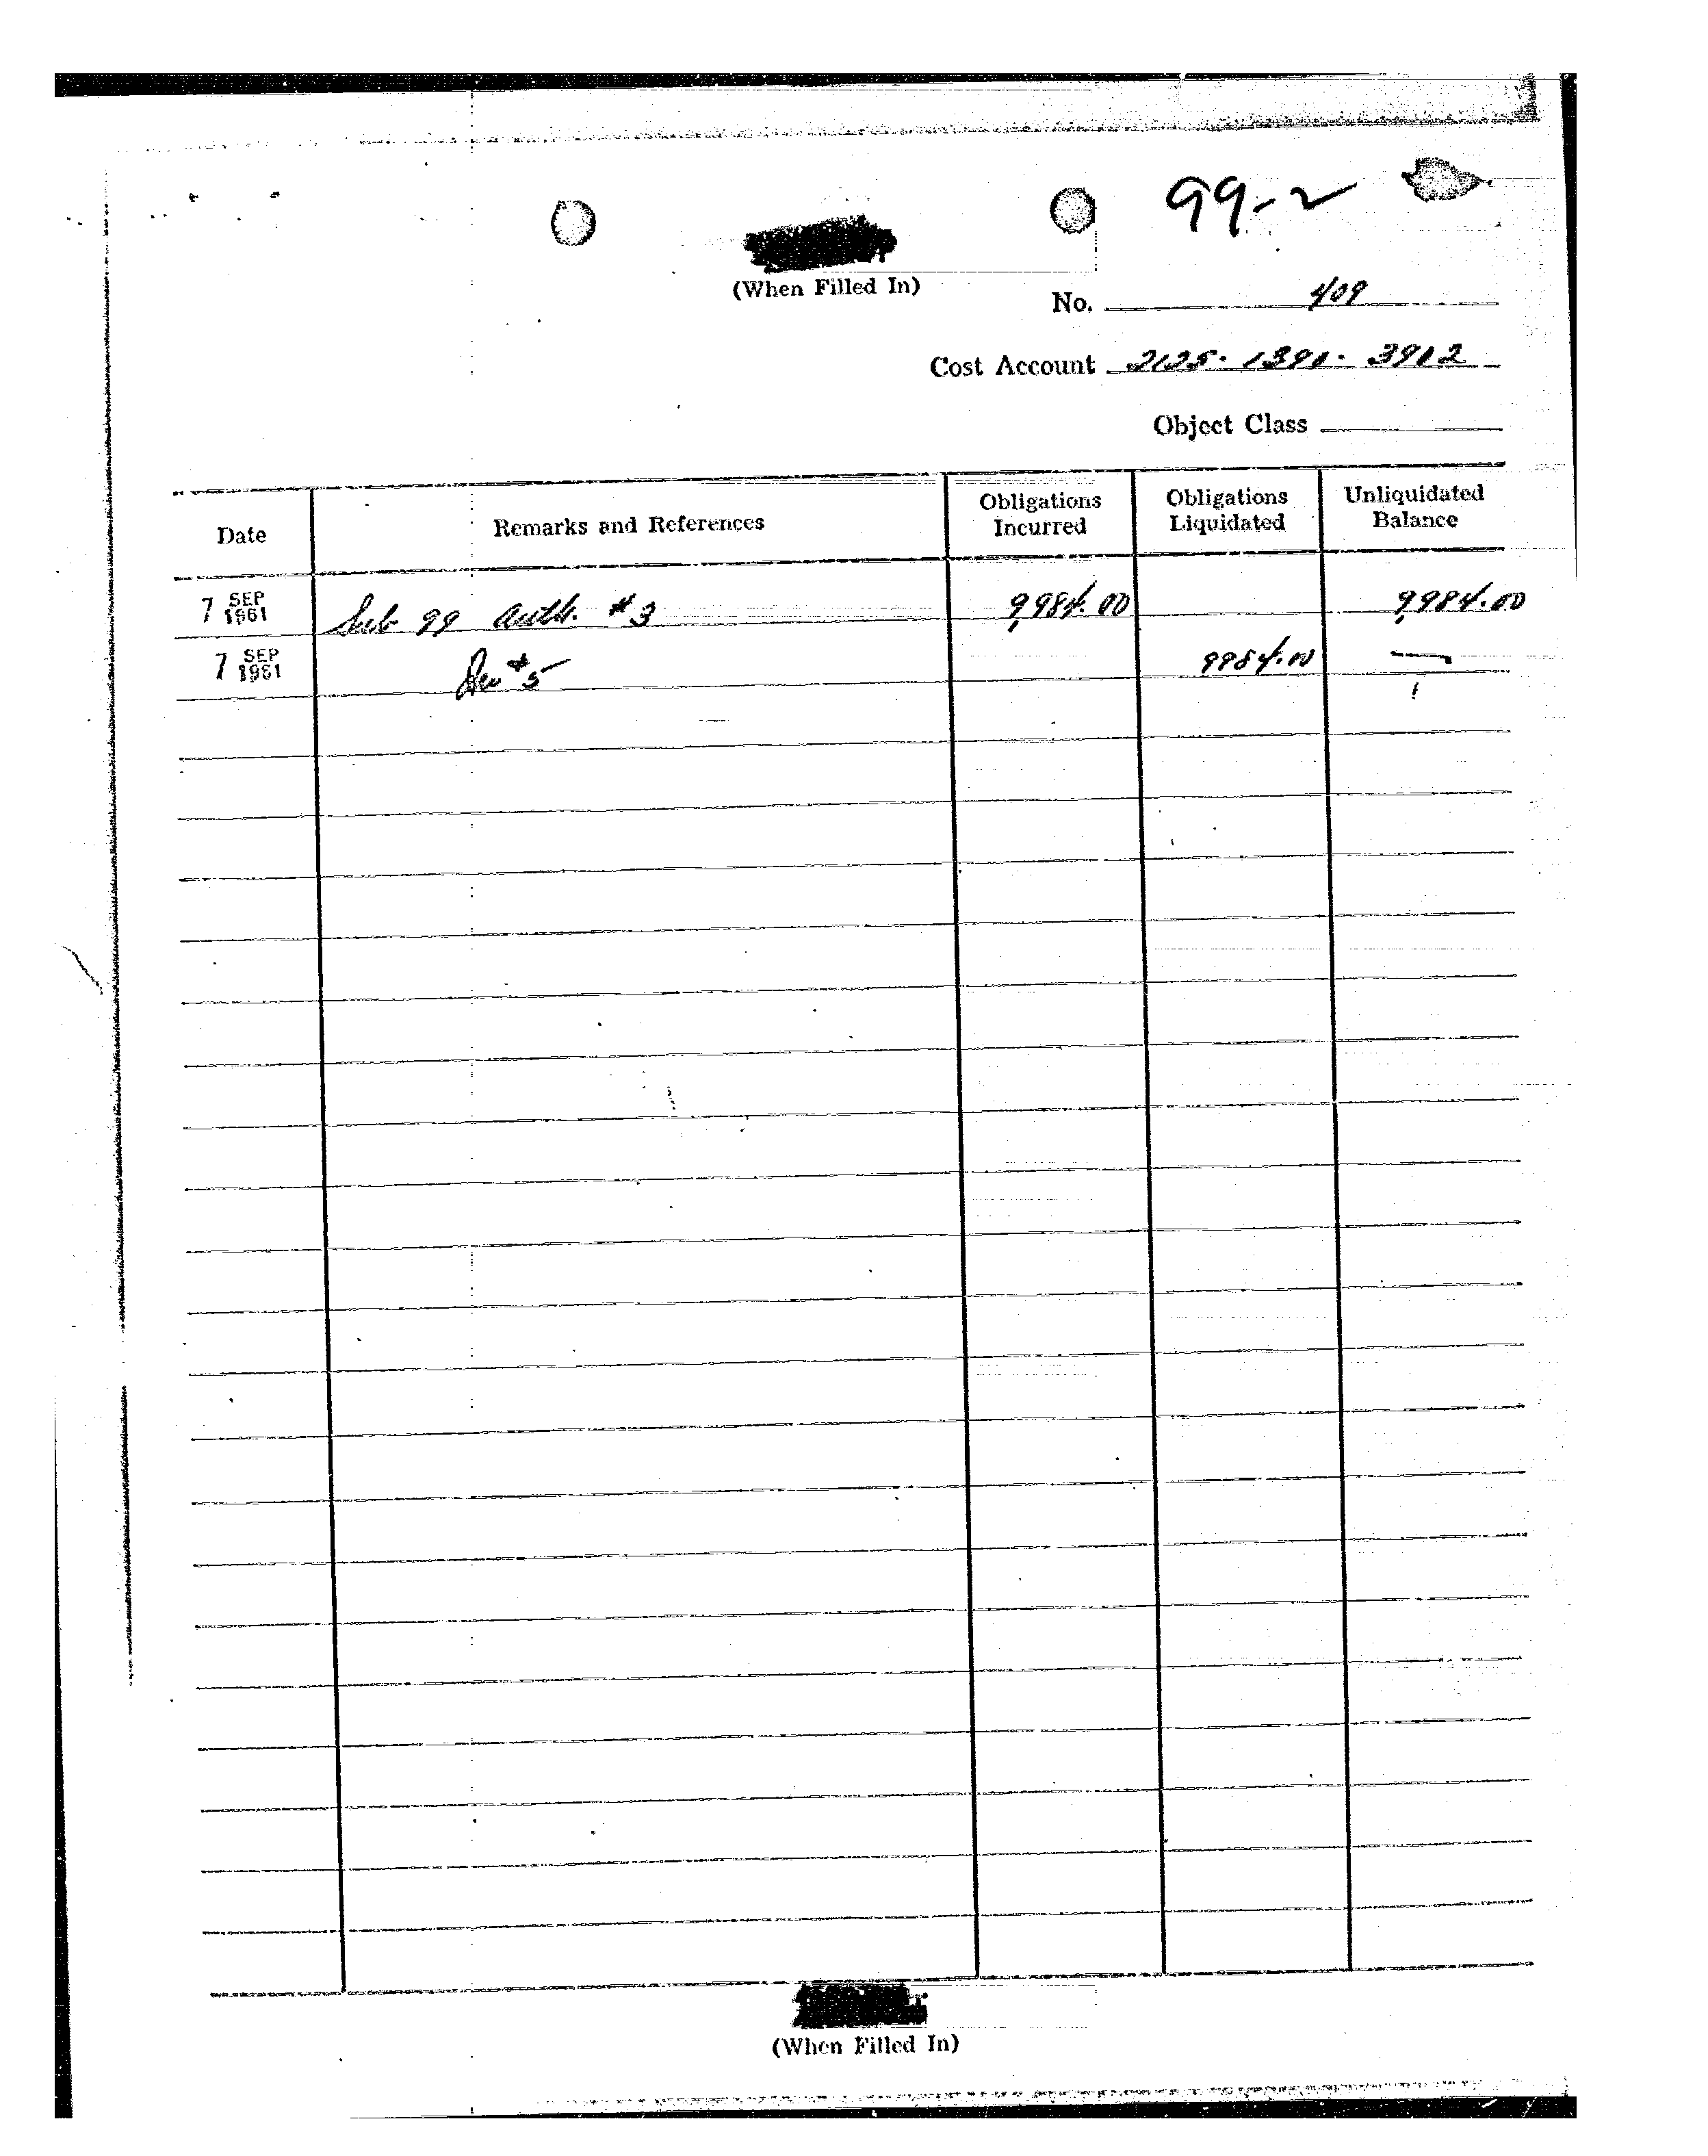 99-2
(When Filled In)
No. 409
Cost Account 2125-1390-3902
Object Class
Date Remarks and References Obligations Incurred Obligations Liquidated Unliquidated Balance
7 SEP 1961 Sub 99 Auth. #3 9,984.00 9,984.00
7 SEP 1961 #5 9984.00 —
(When Filled In)